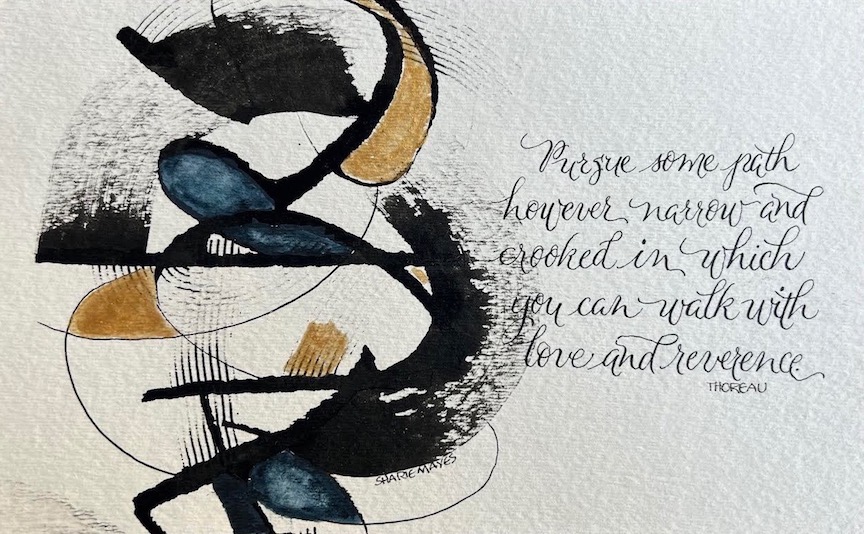 Pursue some path
however narrow and
crooked in which
you can walk with
love and reverence.
THOREAU
SHARIE MAYES